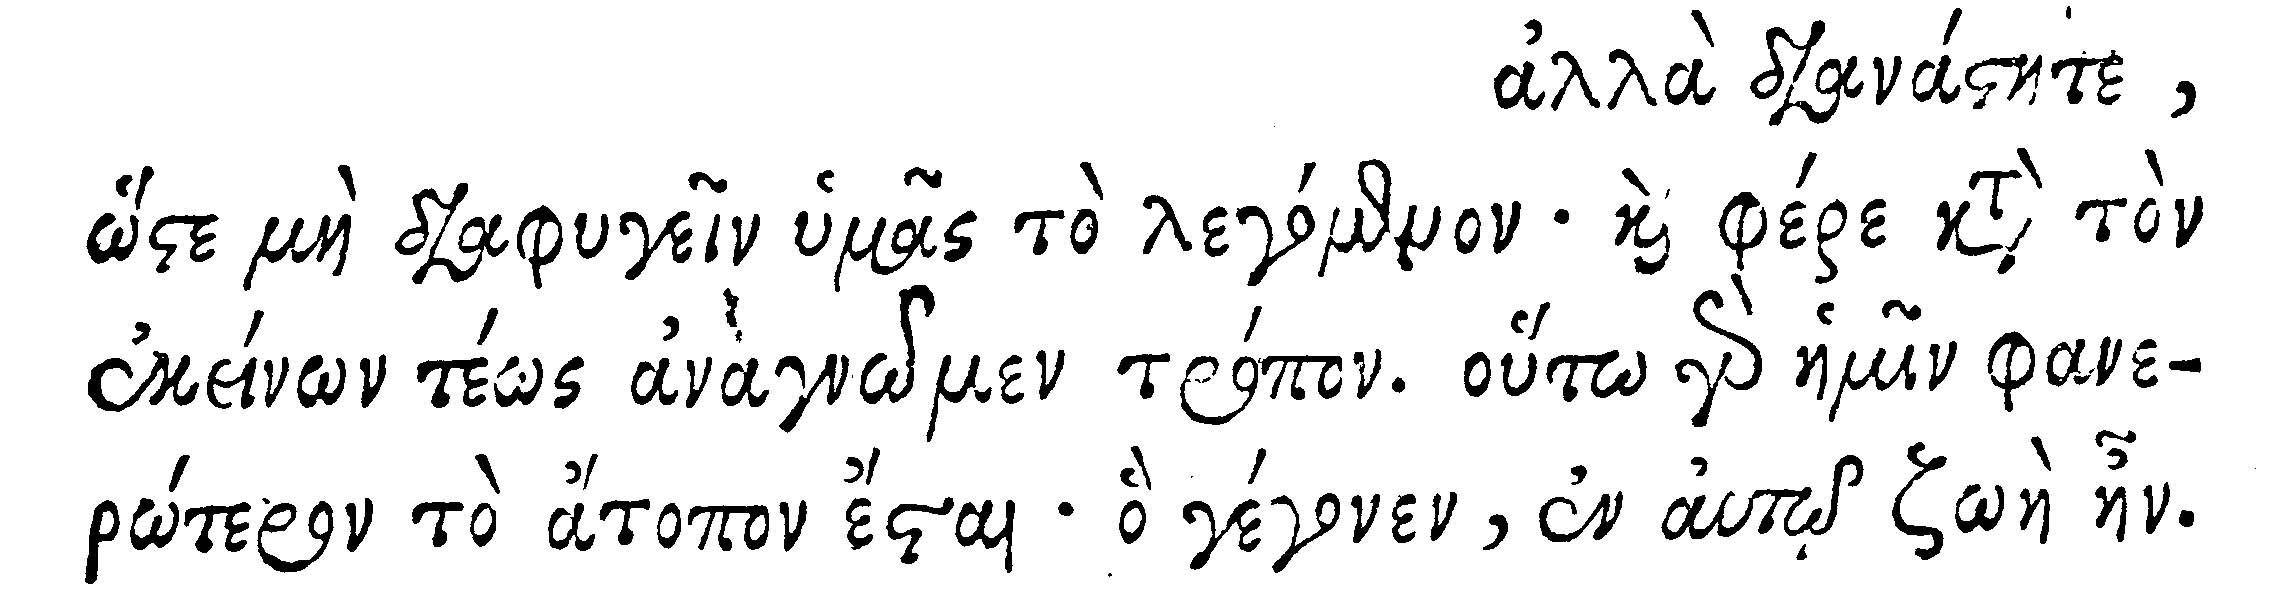 ἀλλὰ διανάστητε,
ὥστε μὴ διαφυγεῖν ὑμᾶς τὸ λεγόμενον· καὶ φέρε κατὰ τὸν
ἐκείνων τέως ἀναγνῶμεν τρόπον. οὕτω γὰρ ἡμῖν φανε-
ρώτερον τὸ ἄτοπον ἔσται· ὃ γέγονεν, ἐν αὐτῷ ζωὴ ἦν.